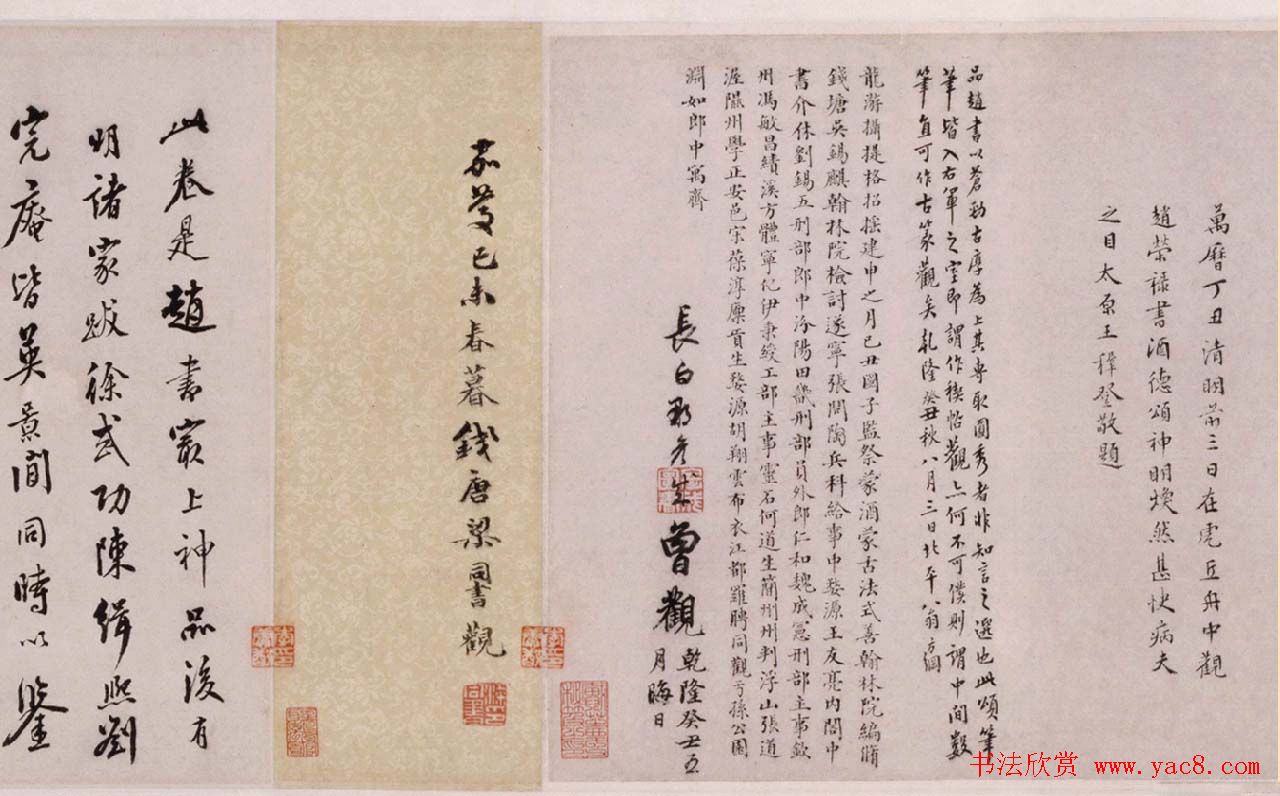 萬曆丁丑清明前三日在虎丘舟中觀
趙榮祿書酒德頌神明煥然甚快病夫
之目太原王穉登敬題
品趙書以蒼勁古厚為上其專取圓秀者非知言之選也此頌筆
筆皆入右軍之室即謂作稧帖觀亦何不可僕則謂中間數
筆直可作古篆觀矣乾隆癸丑秋八月三日北平翁方綱
龍游攝提格招搖建申之月己丑國子監祭酒蒙古法式善翰林院編脩
錢塘吳錫麒翰林院檢討遂寧張問陶兵科給事中婺源王友亮內閣中
書介休劉錫五刑部郎中汾陽田畿刑部員外郎仁和魏成憲刑部主事欽
州馮敏昌績溪方體寧化伊秉綬工部主事靈石何道生簡州州判浮山張道
渥隰州學正安邑宋葆淳廩貢生婺源胡翔雲布衣江都羅聘同觀于孫公園
淵如郎中寓齋
長白
曾觀
乾隆癸丑五
月晦日
嘉慶己未春暮錢唐梁同書觀
此卷是趙書最上神品後有
明諸家跋徐武功陳緝熙劉
完庵皆英景間同時以鑒
书法欣赏 www.yac8.com